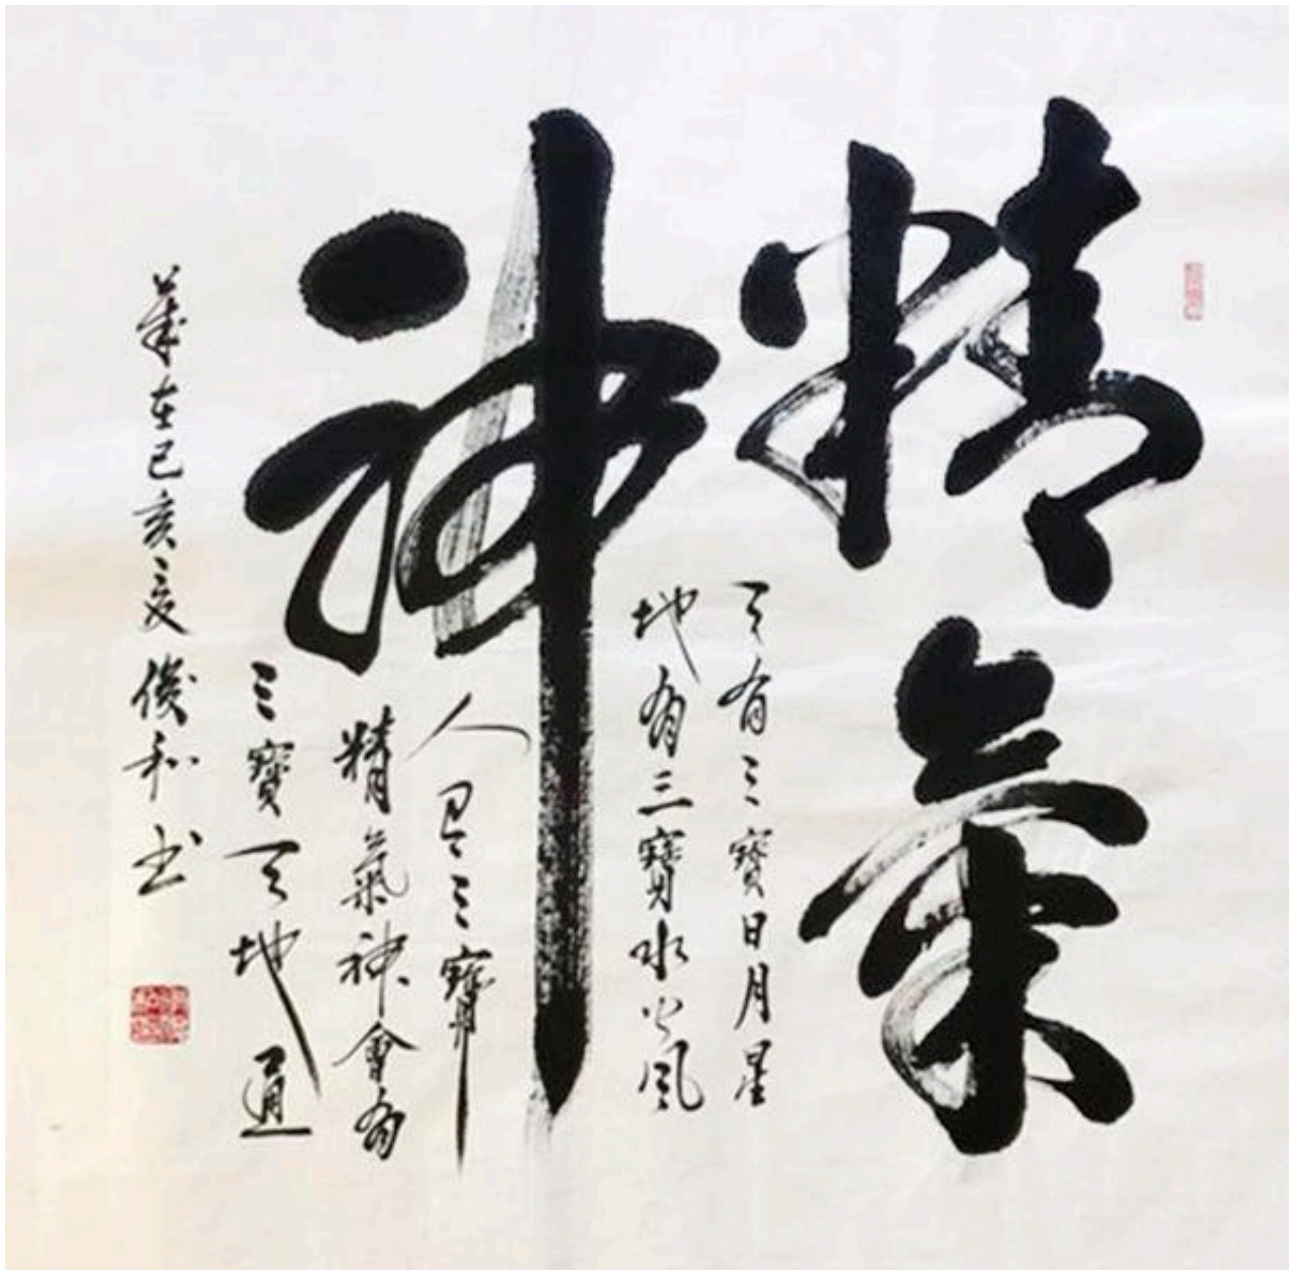 精氣
神
天有三寶日月星
地有三寶水火風
人三寶
精氣神會有
三寶天地通
歲在己亥之夏俊和书